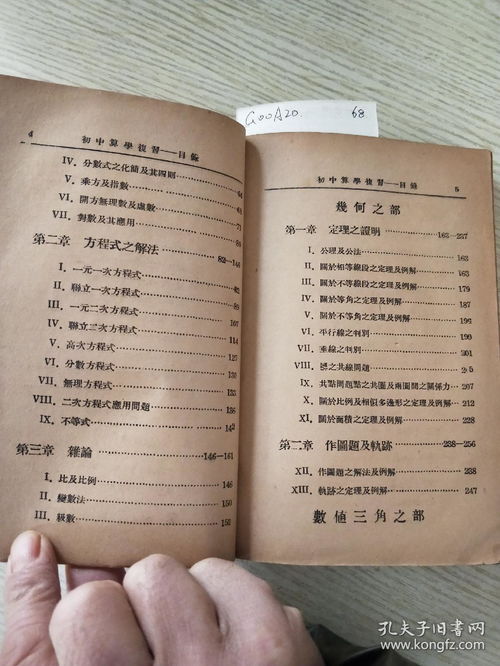 GOOA20. 68
4 初中算學複習——目錄
IV. 分數式之化簡及其四則
V. 乘方及指數
VI. 開方無理數及虛數
VII. 對數及其應用
第二章 方程式之解法 82—146
I. 一元一次方程式
II. 聯立一次方程式
III. 一元二次方程式 107
IV. 聯立二次方程式 114
V. 高次方程式
VI. 分數方程式
VII. 無理方程式
VIII. 二次方程式應用問題 138
IX. 不等式 142
第三章 雜論 146—161
I. 比及比例 146
II. 變數法 150
III. 級數 152
初中算學複習——目錄 5
幾何之部
第一章 定理之證明 163—237
I. 公理及公法 163
II. 關於相等線段之定理及例解 163
III. 關於不等線段之定理及例解 179
IV. 關於等角之定理及例解 187
V. 關於不等角之定理及例解
VI. 平行線之判別
VII. 垂線之判別 201
VIII. 之共線問題
IX. 共點問題點之共圓及兩圓間之關係 207
X. 關於比例及相似多邊形之定理及例解 212
XI. 關於面積之定理及例解 228
第二章 作圖題及軌跡 238—256
XII. 作圖題之解法及例解 238
XIII. 軌跡之定理及例解 247
數值三角之部
孔夫子旧书网
www.kongfz.com